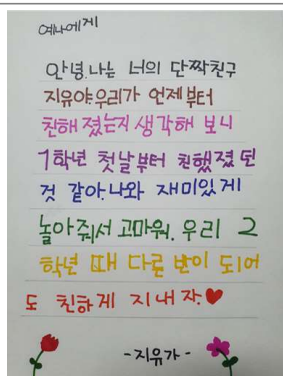 예나에게
안녕.나는 너의 단짝친구
지유야.우리가 언제부터
친해졌는지 생각해 보니
1학년 첫날부터 친했졌던
것 같아.나와 재미있게
놀아줘서 고마워. 우리 2
학년 때 다른 반이 되어
도 친하게 지내자.♥
-지유가-